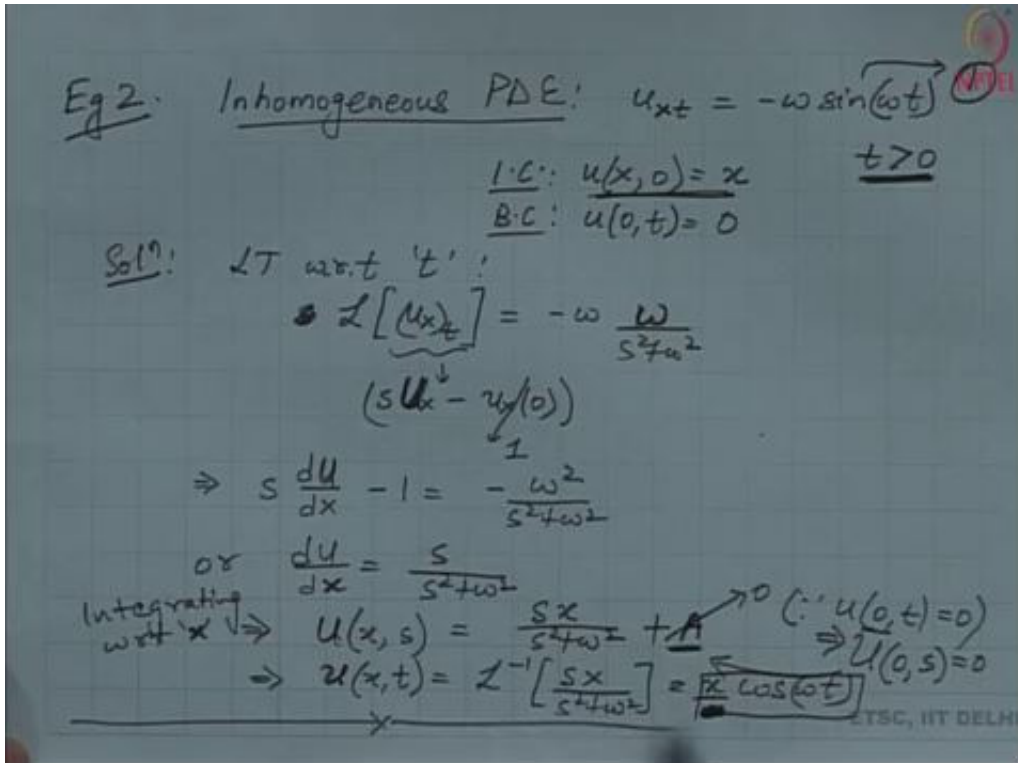 Eg 2. Inhomogeneous PDE: u_xt = -ω sin(ωt)
t > 0
I.C.: u(x, 0) = x
B.C: u(0, t) = 0
Solⁿ: LT w.r.t 't':
ℒ[(u_x)_t] = -ω ω/(s²+ω²)
(s U_x - u_x(0))
1
⇒ s dU/dx - 1 = - ω²/(s²+ω²)
or dU/dx = s/(s²+ω²)
Integrating wrt 'x' ⇒ U(x, s) = sx/(s²+ω²) + A → 0 (∵ u(0, t) = 0)
⇒ U(0, s) = 0
⇒ u(x, t) = ℒ⁻¹[sx/(s²+ω²)] = x cos(ωt)
ETSC, IIT DELHI